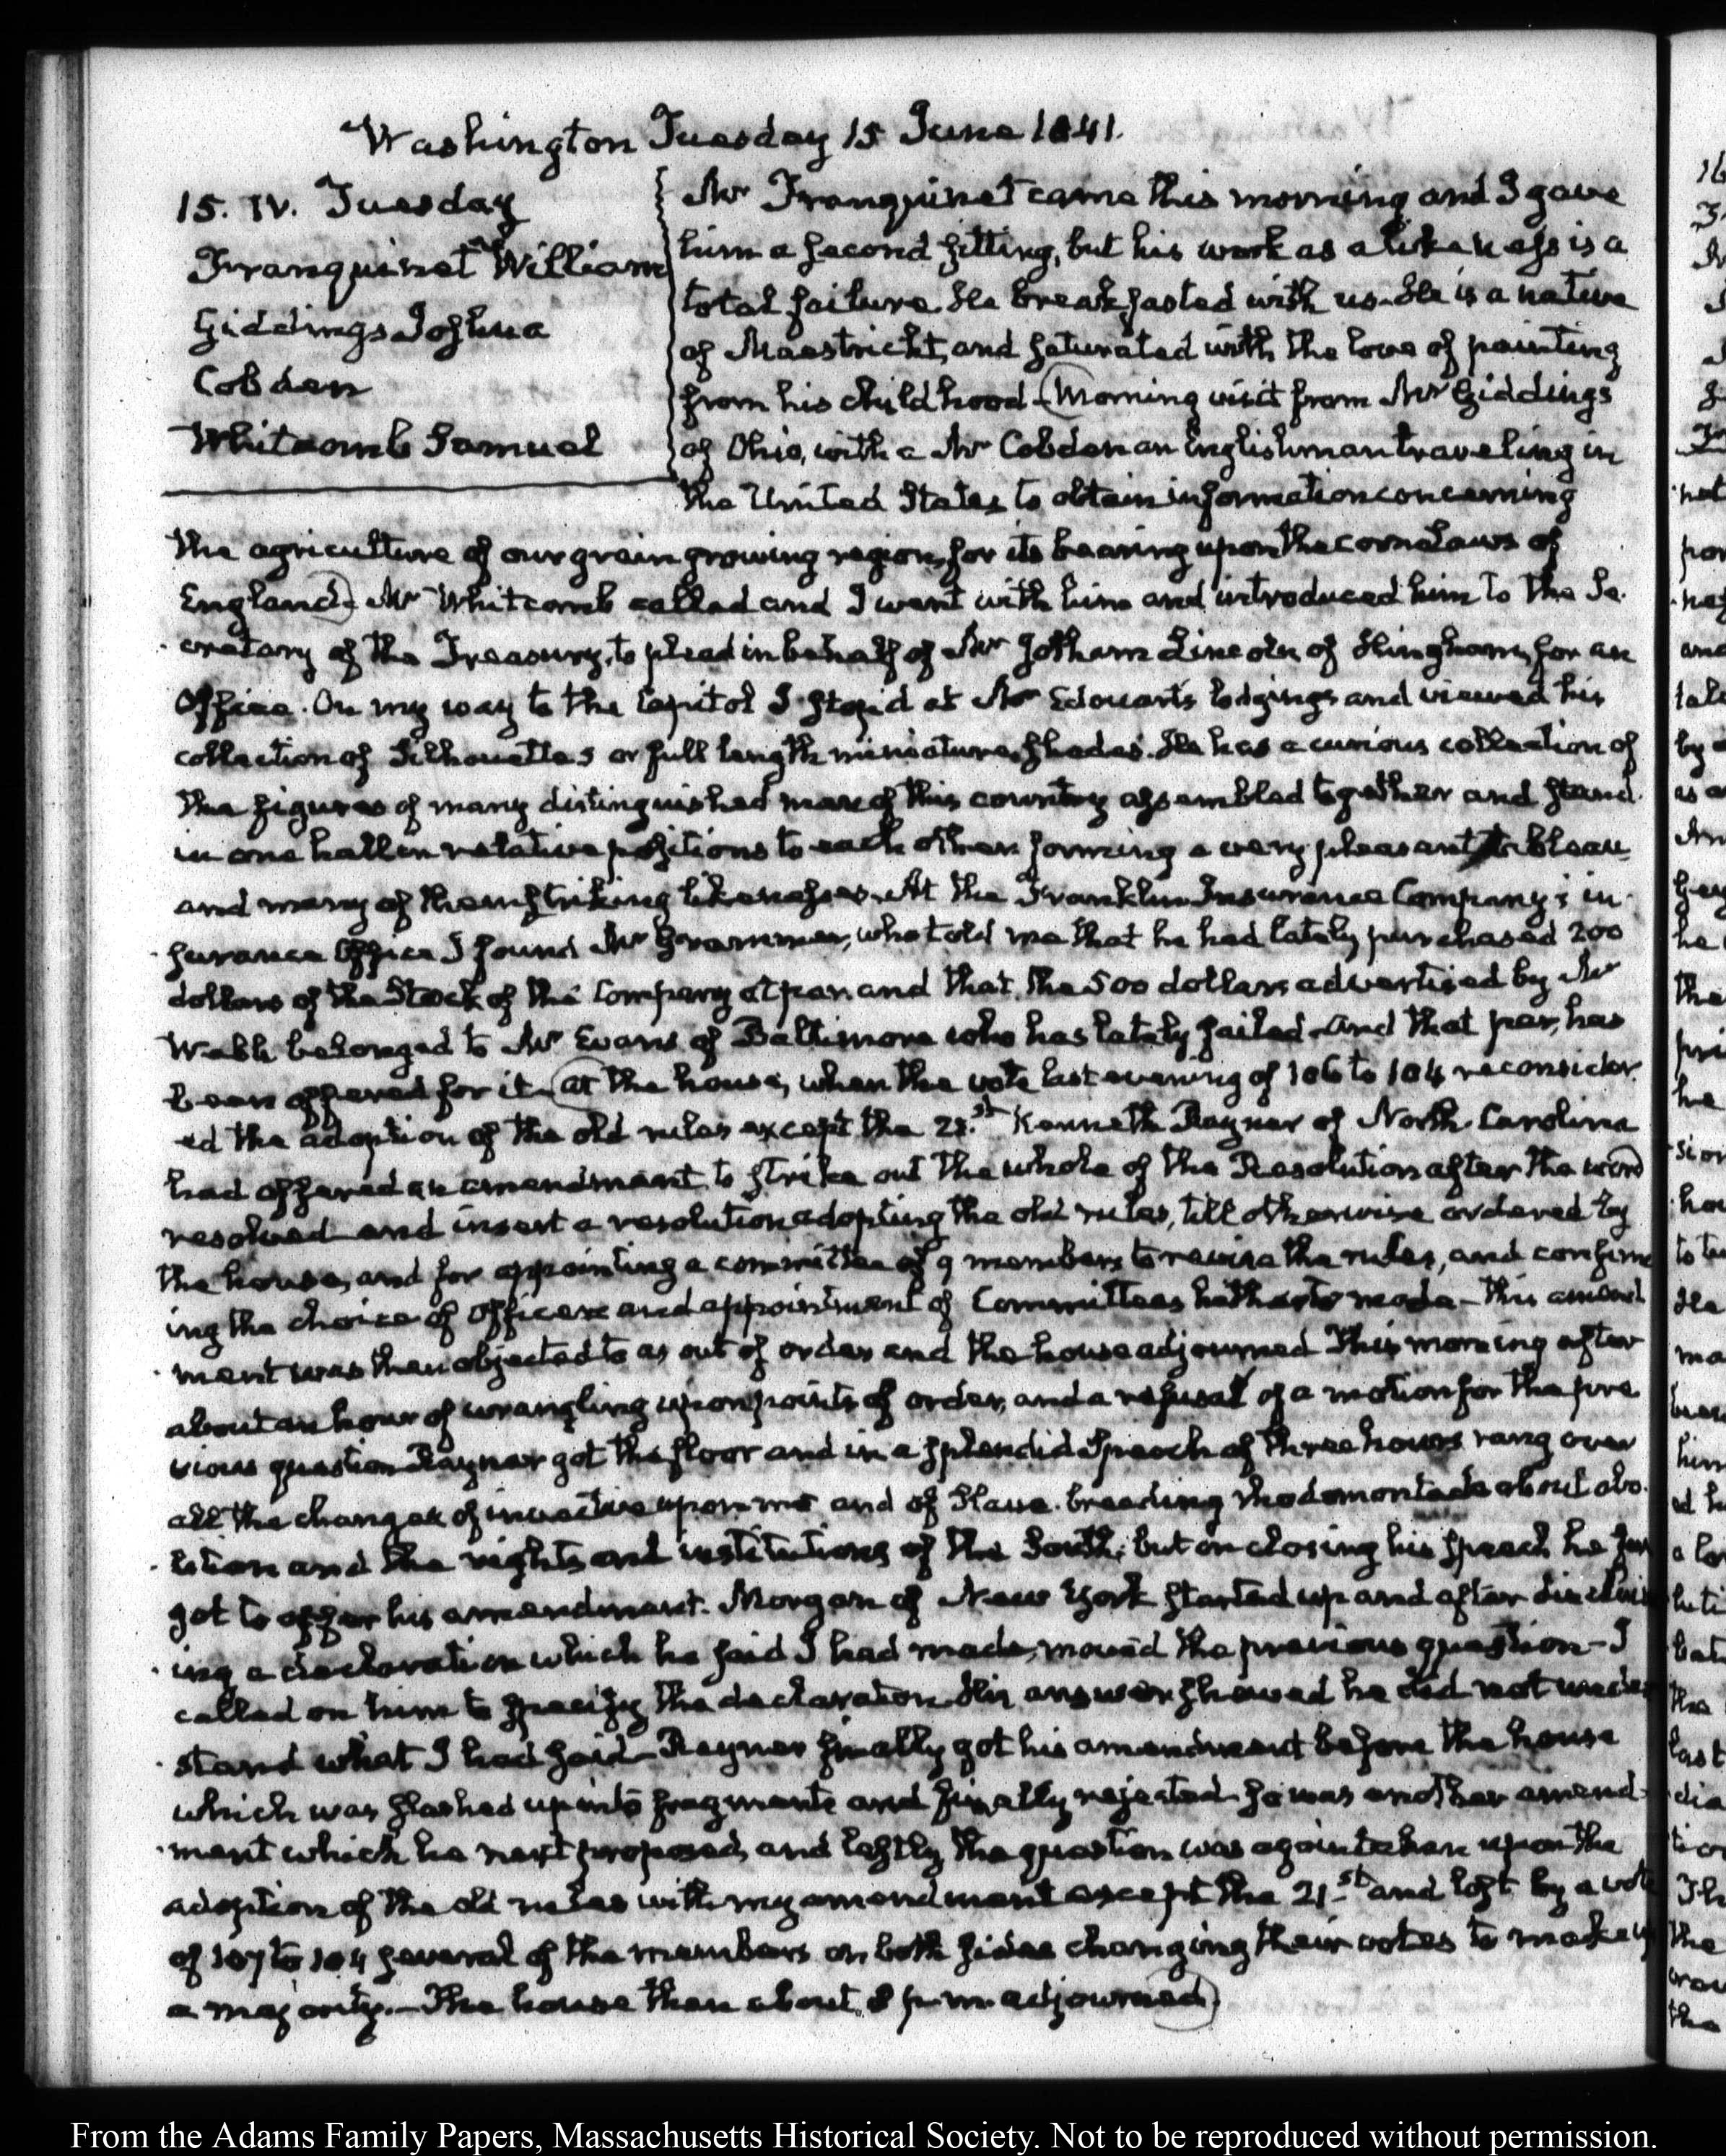 Washington Tuesday 15 June 1841.
15. IV. Tuesday
Franquinet William
Giddings Joshua
Cobden
Whitcomb Samuel
Mr Franquinet came this morning and I gave
him a second sitting, but his work as a likeness is a
total failure. He breakfasted with us. He is a native
of Maestricht, and saturated with the love of painting
from his childhood – Morning visit from Mr Giddings
of Ohio, with a Mr Cobden an Englishman traveling in
the United States to obtain information concerning
the agriculture of our grain growing region, for its bearing upon the corn Laws of
England. Mr Whitcomb called and I went with him and introduced him to the Se-
cretary of the Treasury, to plead in behalf of Mr Jotham Lincoln of Hingham, for an
Office. On my way to the Capitol I stop'd at Mr Edouart's lodgings and viewed his
collection of Silhouettes or full length miniature shades. He has a curious collection of
the figures of many distinguished men of this country assembled together and stand-
in one hall in relative positions to each other forming a very pleasant tableau
and many of them striking likenesses. At the Franklin Insurance Company's in-
surance Office I found Mr Grammer, who told me that he had lately purchased 200
dollars of the Stock of the Company at par and that the 500 dollars advertised by Mr
Webb belonged to Mr Evans of Baltimore who has lately failed – And that par, has
been offered for it – at the house, when the vote last evening of 106 to 104 reconsider-
ed the adoption of the old rules except the 21.st Kenneth Rayner of North-Carolina
had offered an amendment to strike out the whole of the Resolution after the word
resolved and insert a resolution adopting the old rules, till otherwise ordered by
the house, and for appointing a committee of 9 members to revise the rules, and confirm
ing the choice of officers and appointment of Committees hitherto made – this amend
ment was then objected to as out of order and the house adjourned This morning after
about an hour of wrangling upon points of order, and a refusal of a motion for the pre
vious question Rayner got the floor and in a splendid Speech of three hours rang over
all the changes of invective upon me and of Slave-breeding rhodomontade about abo-
lition and the rights and institutions of the South; but on closing his speech he for
got to offer his amendment. Morgan of New York started up and after disclaim
ing a declaration which he said I had made, moved the previous question – I
called on him to specify the declaration. His answer showed he did not under
stand what I had said – Rayner finally got his amendment before the house
which was slashed up into fragments and finally rejected – so was another amend-
ment which he next proposed, and lastly the question was again taken upon the
adoption of the old rules with my amendment except the 21.st and lost by a vote
of 107 to 104 several of the members on both sides changing their votes to make up
a majority. – The house then about 8 p.m. adjourned.
From the Adams Family Papers, Massachusetts Historical Society. Not to be reproduced without permission.